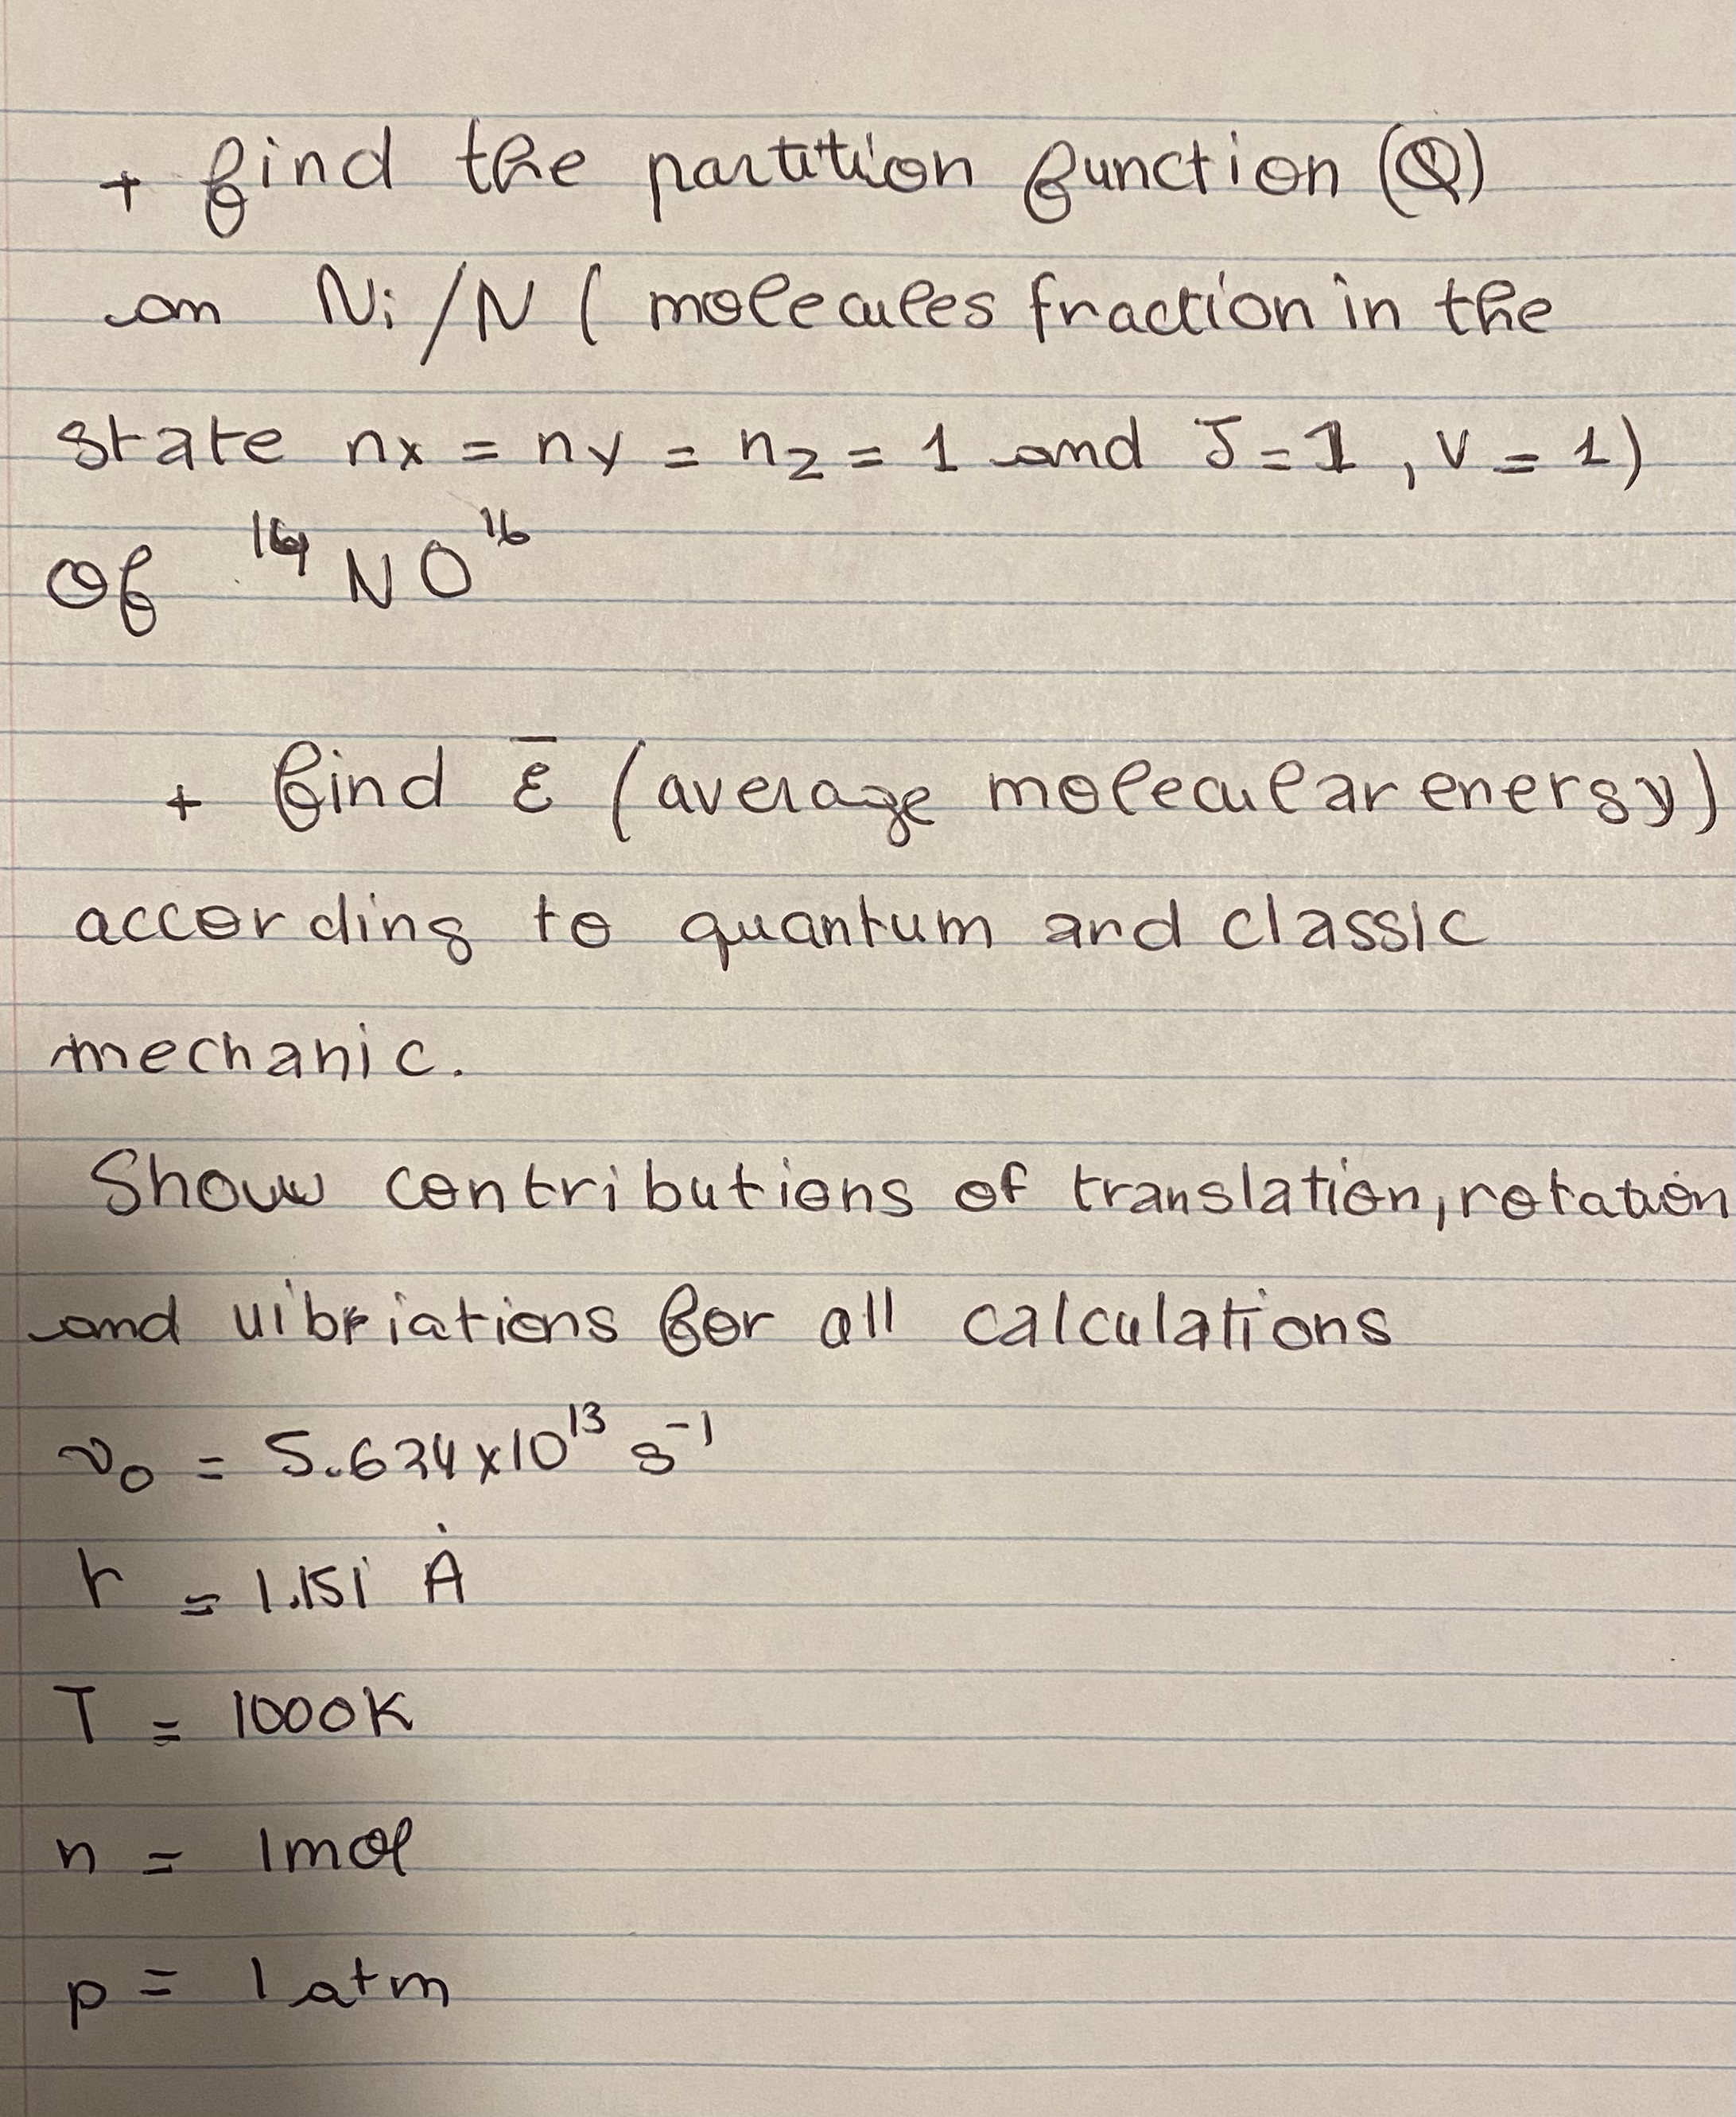 + find the partition function (Q)
on Ni/N ( molecules fraction in the
state nx = ny = nz = 1 and J=1, v = 1)
Of ¹⁴NO¹⁶
+ find ε̅ (average molecular energy)
according to quantum and classic
mechanic.
Show contributions of translation, rotation
and vibriations for all calculations
ν₀ = 5.624x10¹³ s⁻¹
r = 1.151 Å
T = 1000K
n = 1mol
p = 1 atm